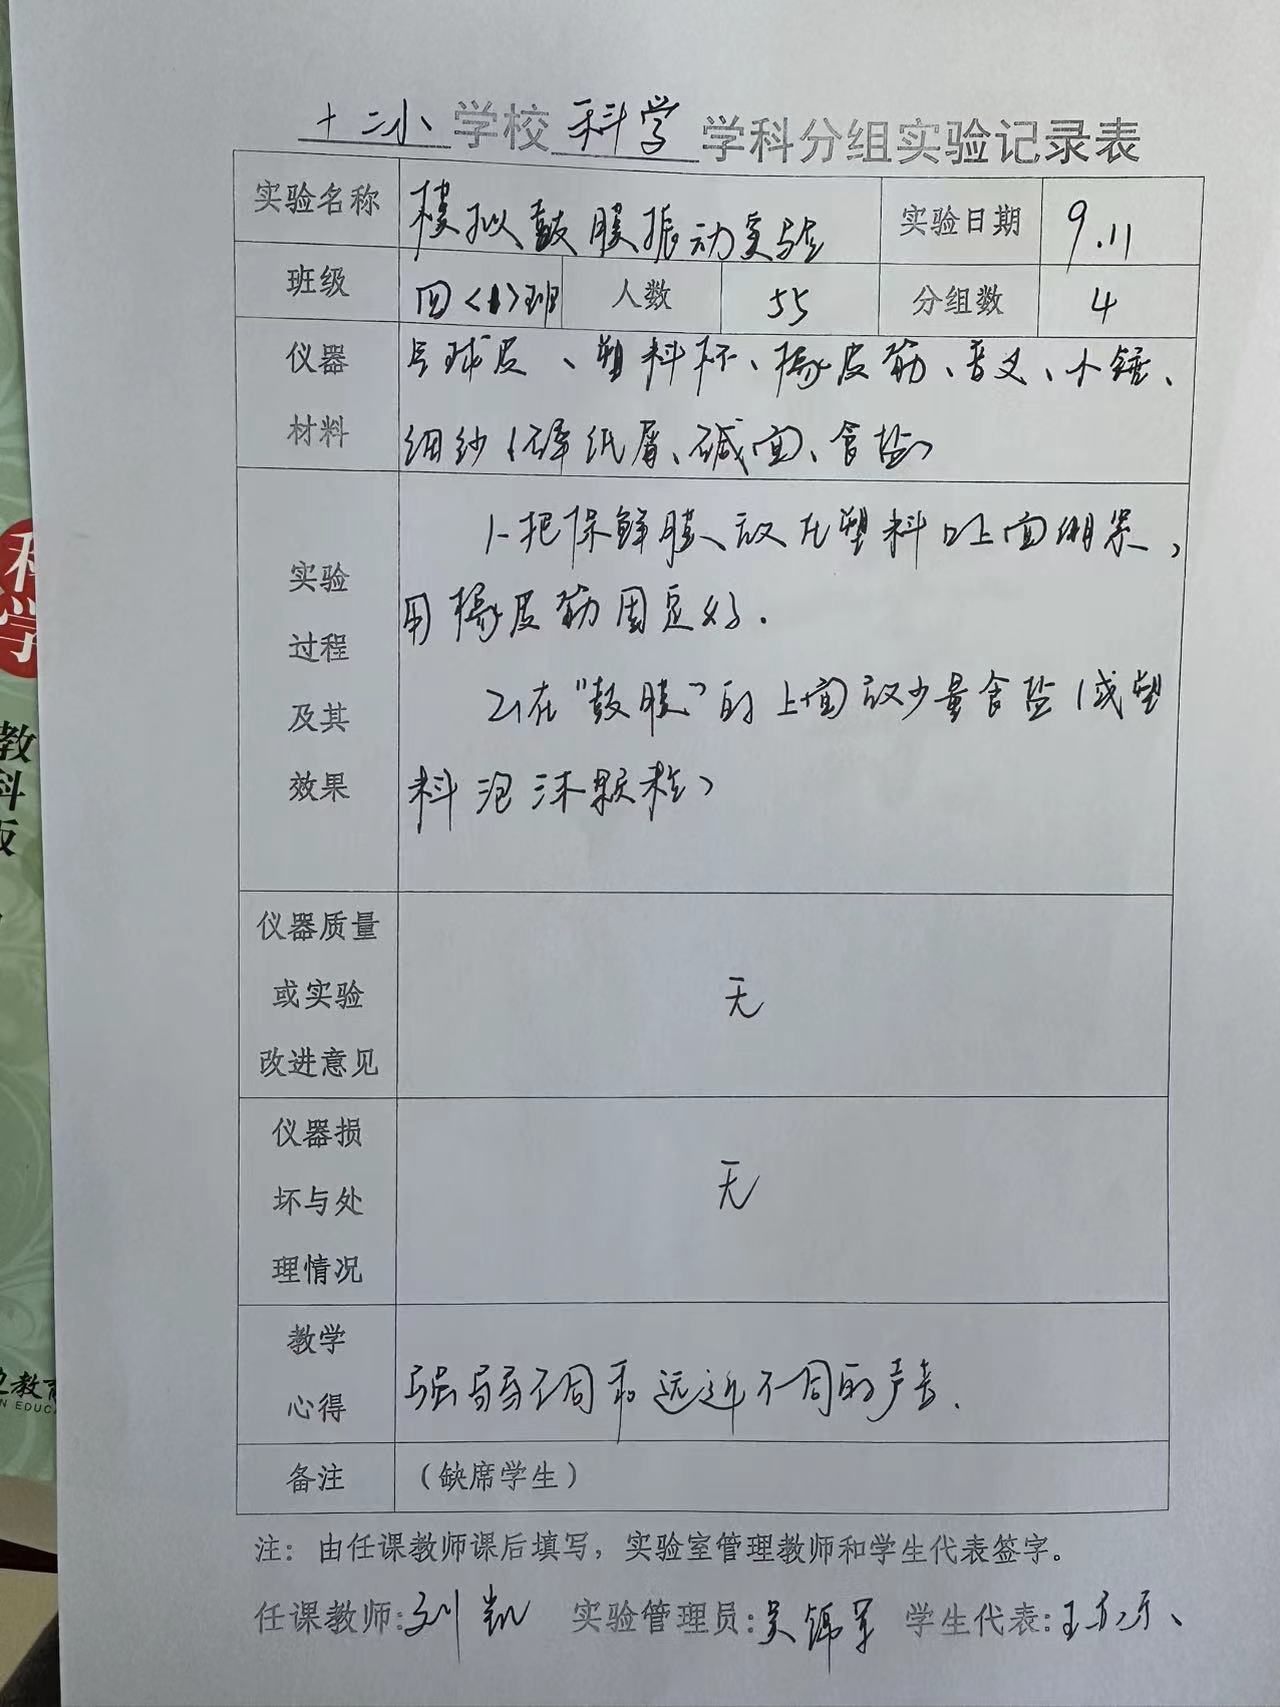 十二小学校科学学科分组实验记录表
实验名称 模拟鼓膜振动实验 实验日期 9.11
班级 四<1>班 人数 55 分组数 4
仪器 气球皮、塑料杯、橡皮筋、音叉、小锤、
材料 细纱(碎纸屑、碱面、食盐)
1、把保鲜膜放在塑料口上面绷紧,
实验
用橡皮筋固定好.
过程
2、在“鼓膜”的上面放少量食盐(或塑
及其
效果 料泡沫颗粒)
仪器质量
或实验 无
改进意见
仪器损
坏与处 无
理情况
教学
心得 强弱不同和远近不同的声音.
备注 (缺席学生)
注:由任课教师课后填写,实验室管理教师和学生代表签字。
任课教师:刘凯 实验管理员:吴 学生代表:王
科
学
教
科
版
教育
N EDUC